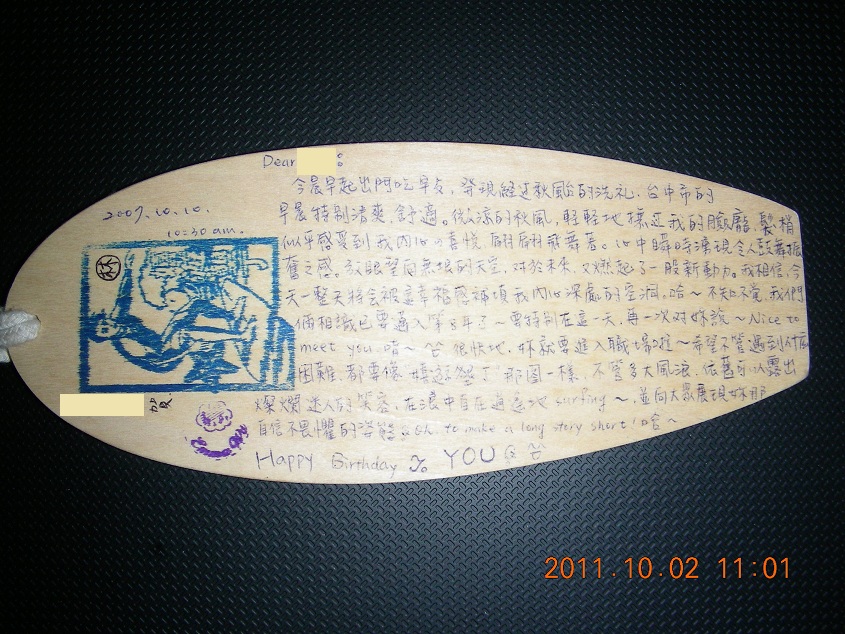 Dear :
今晨早起出門吃早点,發現經過秋颱的洗礼,台中市的
早晨特别清爽、舒適。微涼的秋風,輕輕地撫在我的臉龐、髮梢
似乎感受到我内心的喜悦 翩翩飛舞著。心中瞬時湧現令人鼓舞振
奮之感。放眼望向無垠的天空,对於未來,又燃起了一股新動力。我相信,今
天一整天將會被這幸福感補填我內心深處的空洞,哈~不知不覺,我們
倆相識已要邁入第8年了~要特别在這一天,再一次对妳說~Nice to
meet you 唷~ 很快地,妳就要進入職場啦~希望不管遇到什麼
困難,都要像 那圖一樣,不管多大風浪,依舊可以露出
燦爛迷人的笑容,在浪中自在逍遙地 surfing~,並向大眾展現妳那
自信不畏懼的姿態。oh, to make a long story short! 哈~
Happy Birthday To YOU
2007.10.10.
10:30 am.
林
賀
2011.10.02 11:01